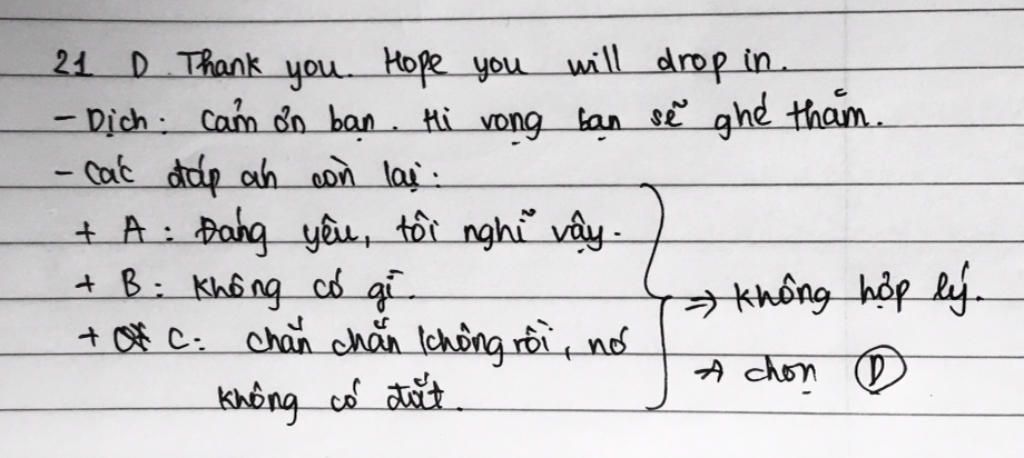 21 D. Thank you. Hope you will drop in.
- Dịch: Cảm ơn bạn. Hi vọng bạn sẽ ghé thăm.
- Các đáp án còn lại:
+ A: Đáng yêu, tôi nghĩ vậy.
+ B: Không có gì.
+ C: chắn chắn không rồi, nó
không có đắt.
⇒ Không hợp lý.
→ chọn D